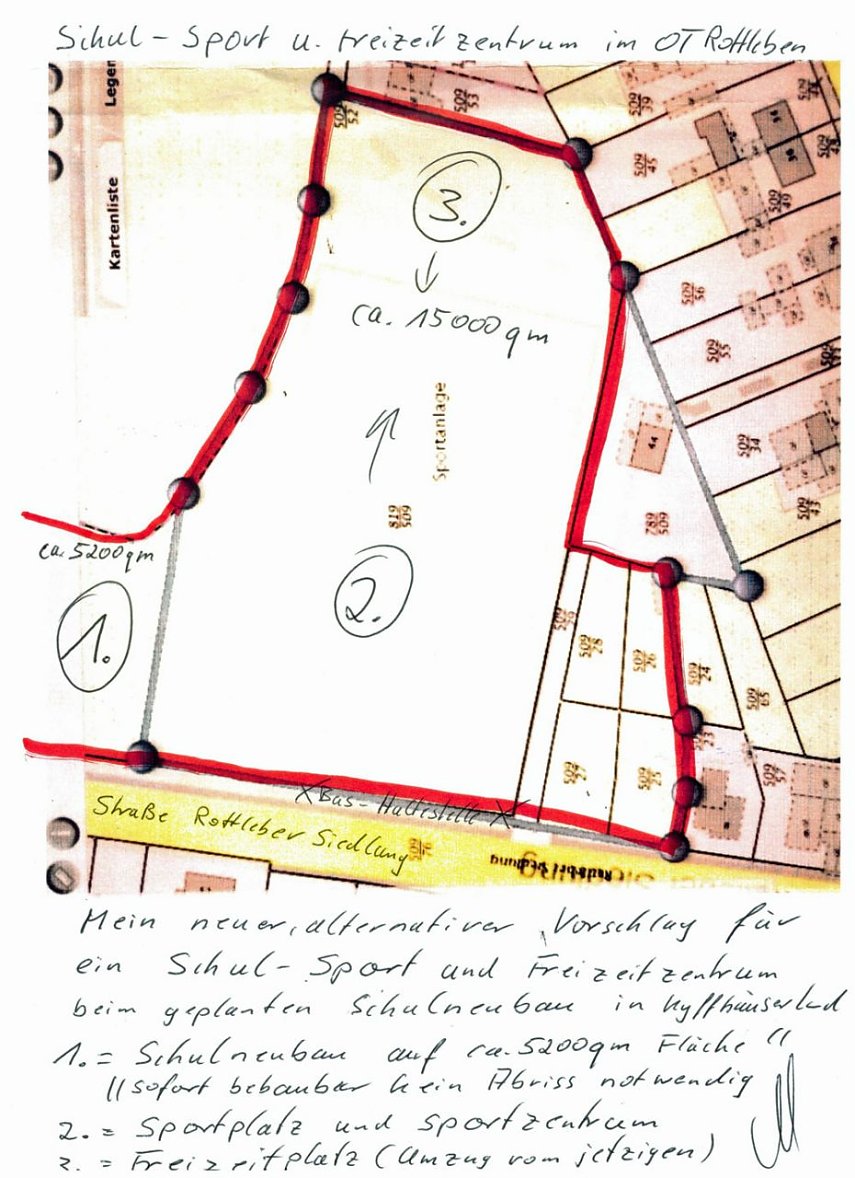 Schul-Sport u. Freizeitzentrum im OT Rottleben
Legen
Kartenliste
509
52
509
53
509
39
509
45
509
49
509
48
3.
ca. 15000qm
509
56
509
55
509
34
509
43
Sportanlage
819
509
44
789
509
ca. 5200qm
1.
2.
509
29
509
28
509
26
509
24
509
65
509
27
509
25
509
23
509
57
XBus-Haltestelle X
Straße Rottleber Siedlung
Mein neuer, alternativer Vorschlag für
ein Schul-Sport und Freizeitzentrum
beim geplanten Schulneubau in Kyffhäuserland
1. = Schulneubau auf ca. 5200qm Fläche "
"sofort bebaubar kein Abriss notwendig
2. = Sportplatz und Sportzentrum
3. = Freizeitplatz (Umzug vom jetzigen)